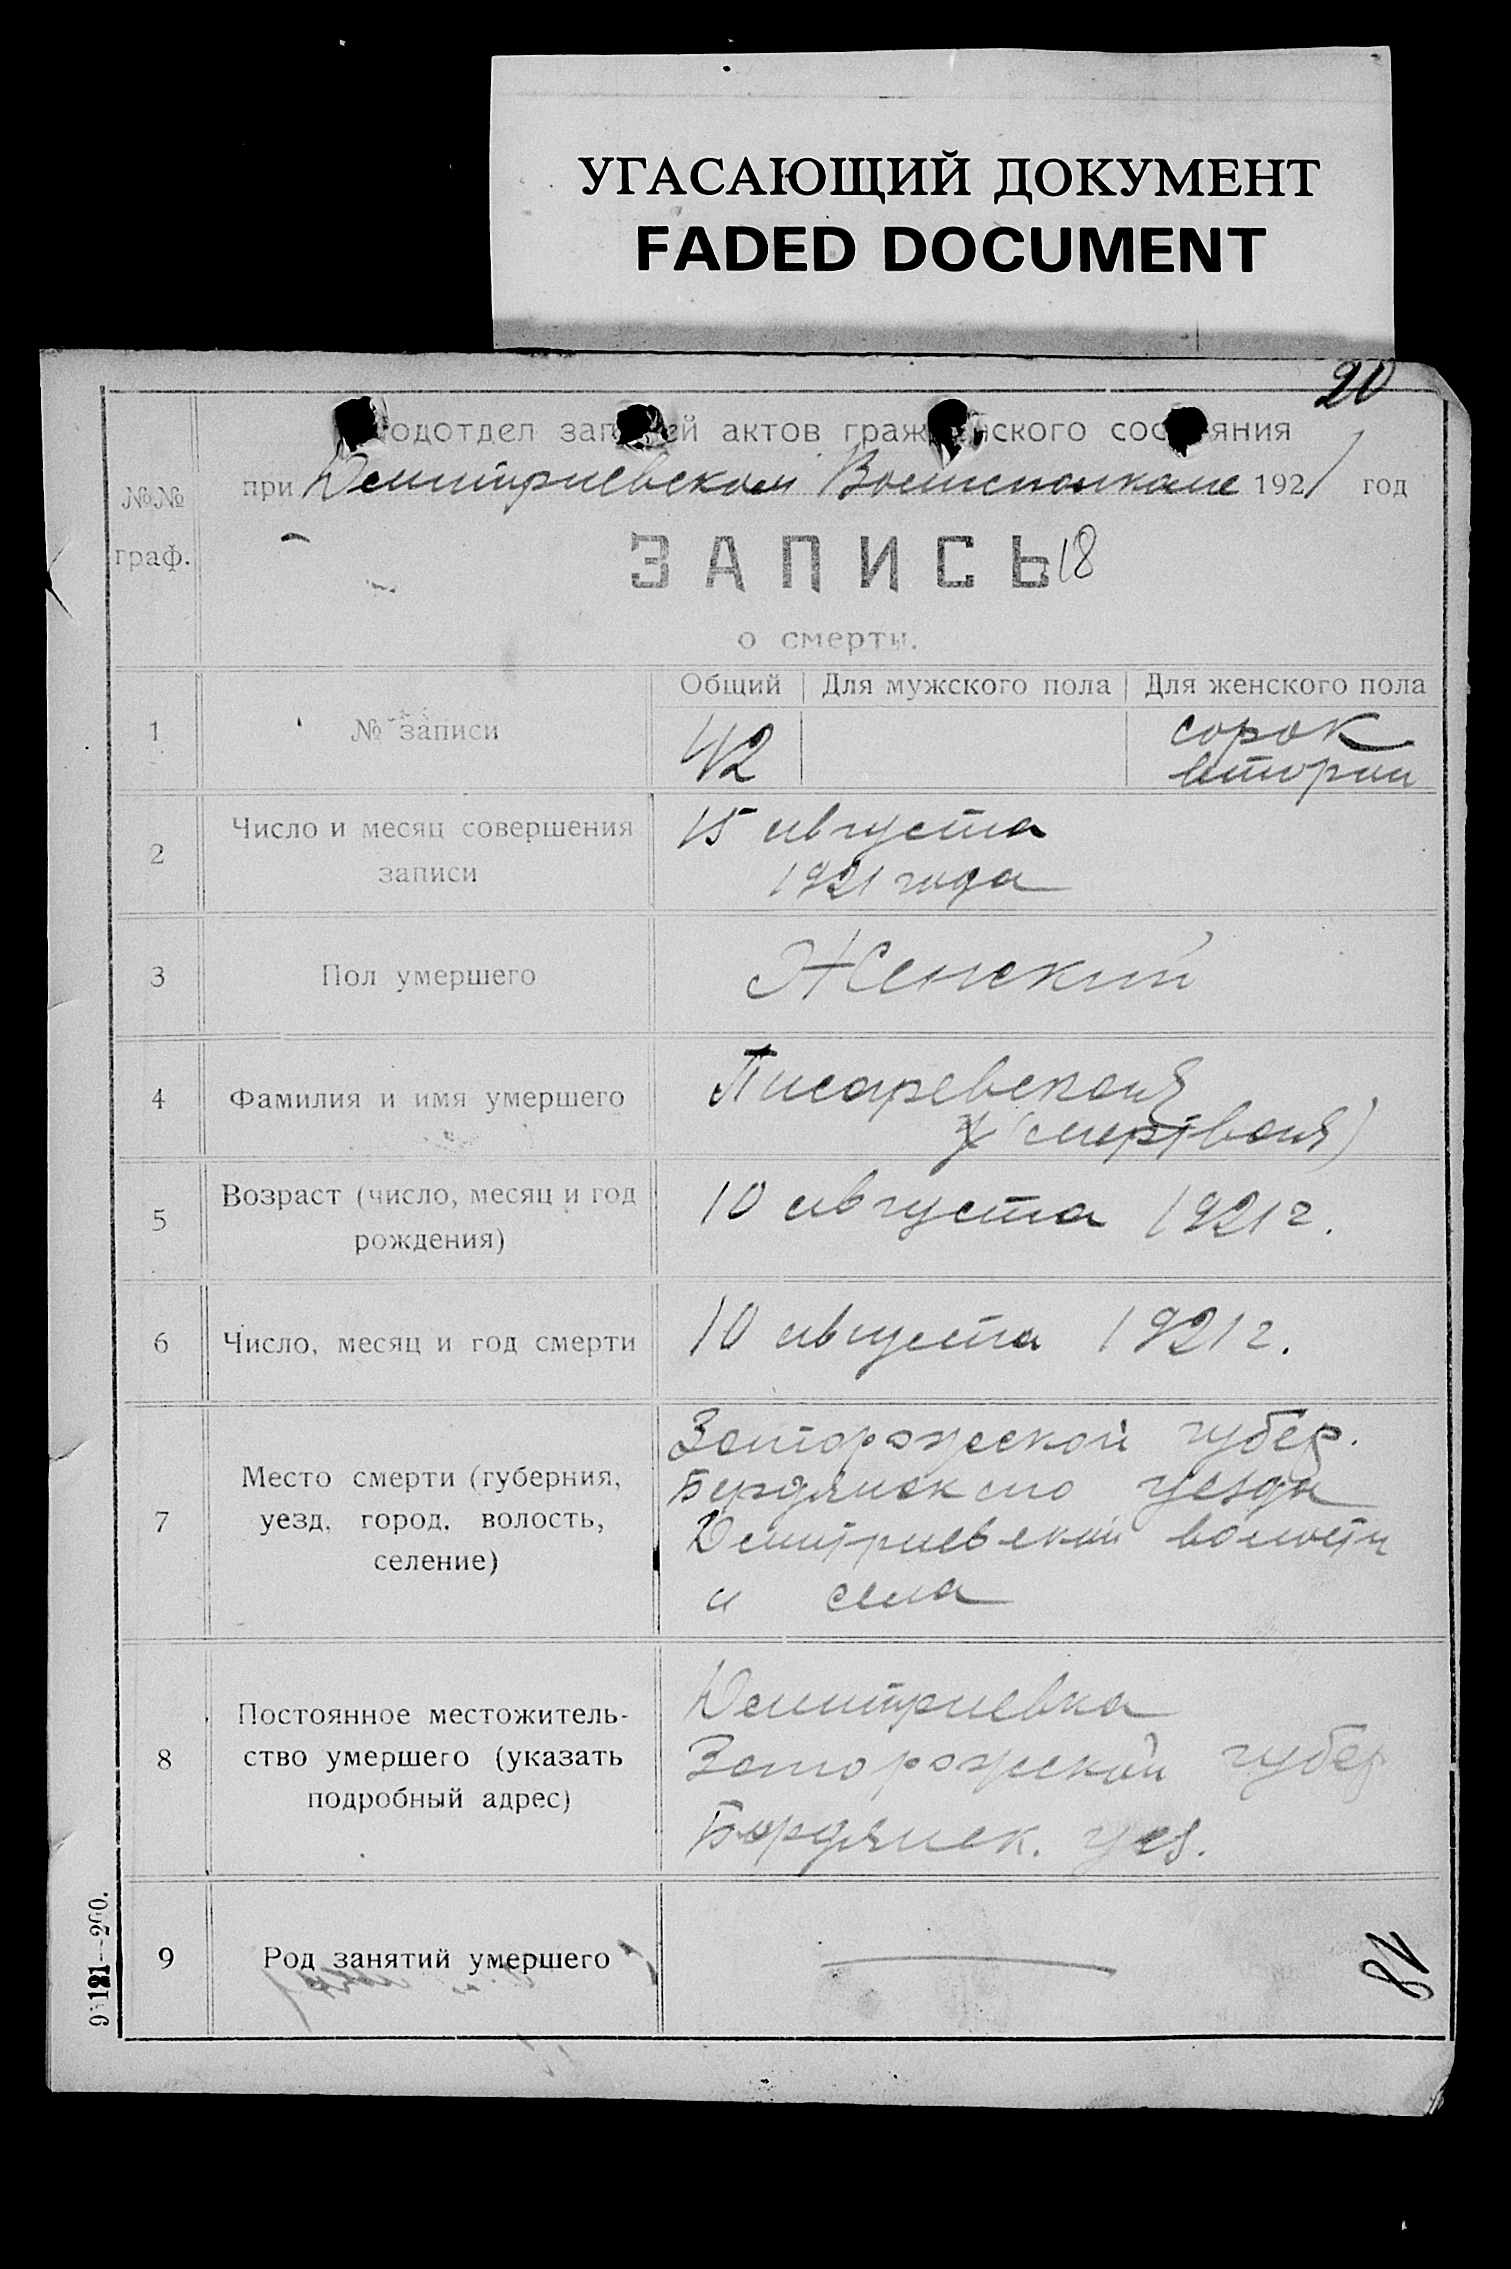 УГАСАЮЩИЙ ДОКУМЕНТ
FADED DOCUMENT
20
Подотдел записей актов гражданского состояния
при Дмитриевском Волисполкоме 1921 год
№№ граф.
ЗАПИСЬ 18
о смерти.
Общий Для мужского пола Для женского пола
1 № записи 42 сорок
втории
2 Число и месяц совершения записи 15 августа
1921 года
3 Пол умершего Женский
4 Фамилия и имя умершего Писаревская
(мертвая)
5 Возраст (число, месяц и год рождения) 10 августа 1921 г.
6 Число, месяц и год смерти 10 августа 1921 г.
7 Место смерти (губерния, уезд, город, волость, селение) Запорожской губер.
Бердянского уезда
Дмитриевской волости
и села
8 Постоянное местожительство умершего (указать подробный адрес) Дмитриевка
Запорожской губер
Бердянск. уез.
9 Род занятий умершего
18